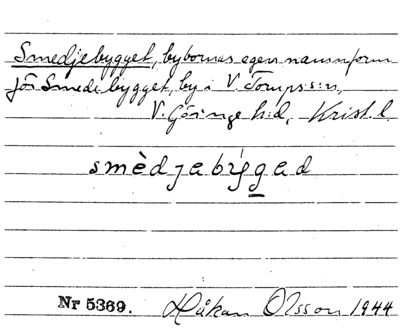 Smedjebygget, bybornas egen namnform
för Smedebygget, by i V. Torups sn,
V. Göinge h:d, Krist. l.
smèdjabýgad
Nr 5369. Håkan Olsson 1944